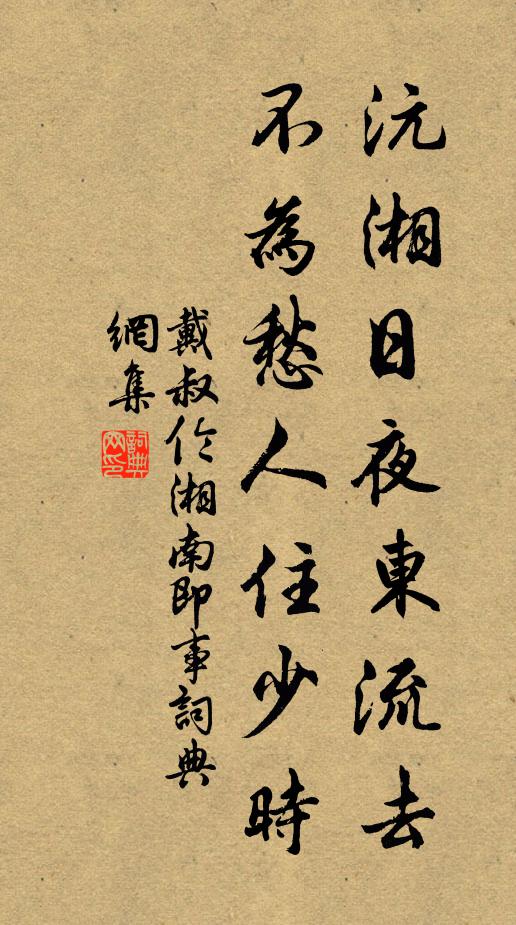 沅湘日夜東流去
不為愁人住少時
戴叔伦湘南即事詞典
網集
詞典網印